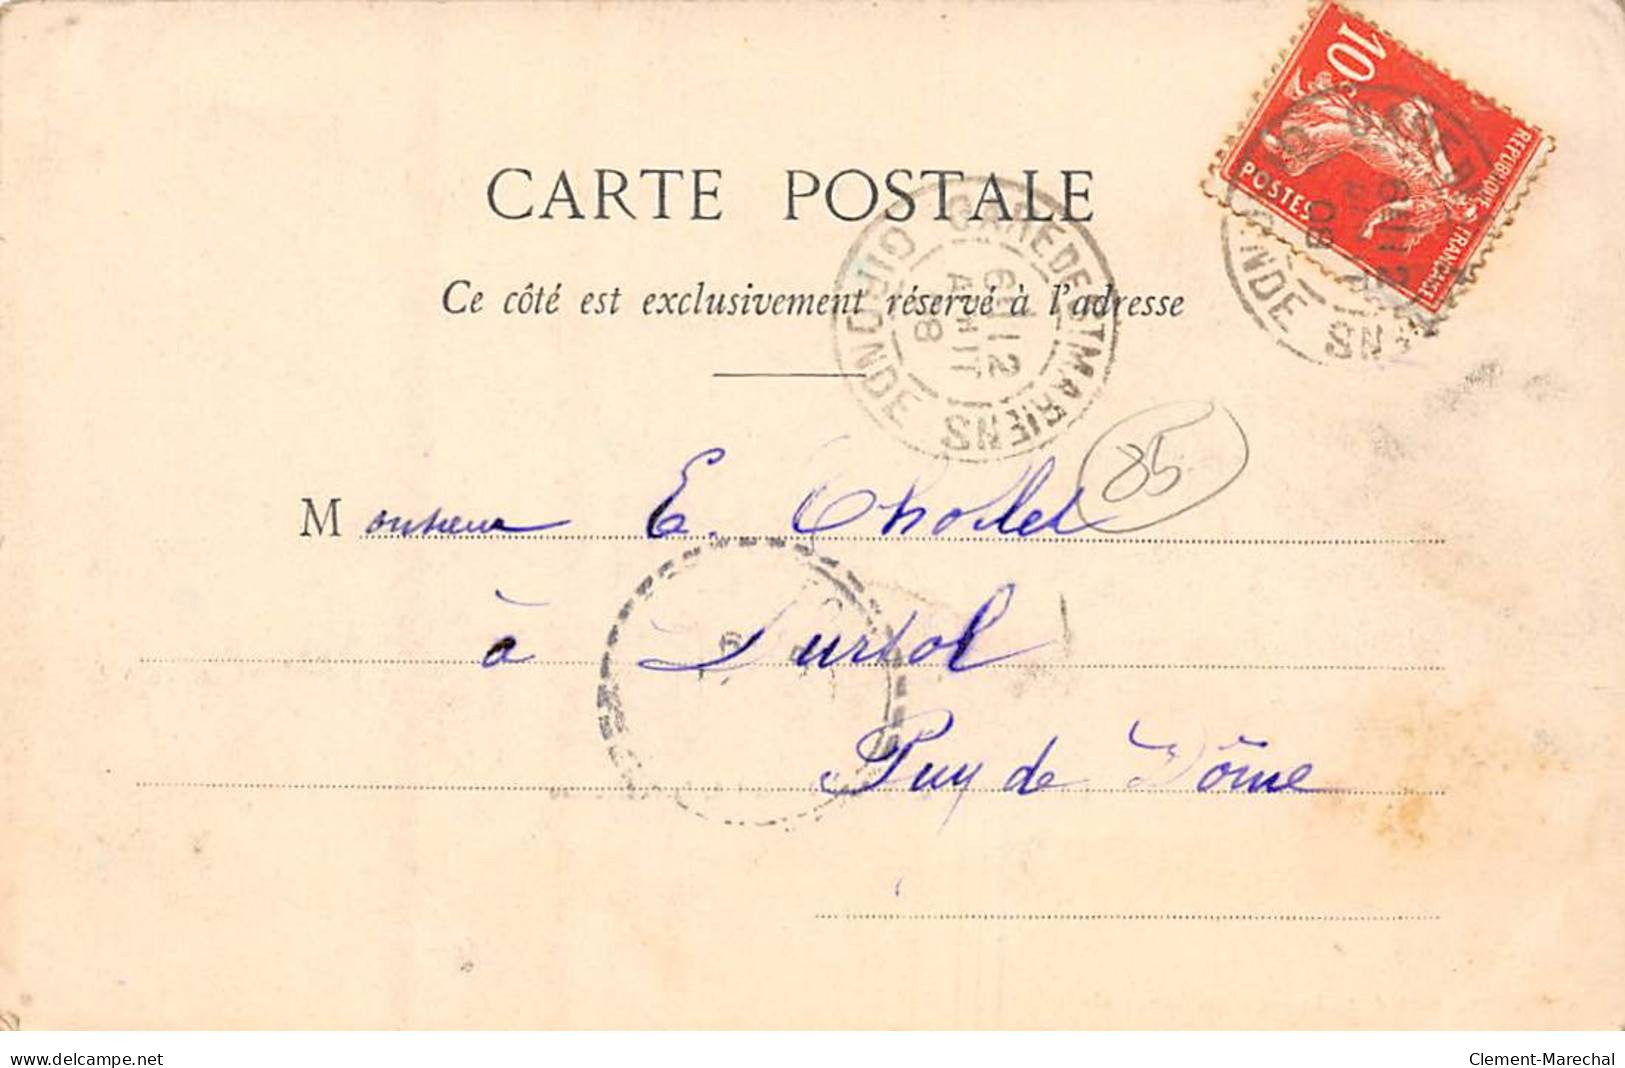 10c
RÉPUBLIQUE FRANÇAISE
POSTES
CARTE POSTALE
Ce côté est exclusivement réservé à l'adresse
GARE DE ST MARIENS
GIRONDE
6 12
AOUT
08
85
Monsieur E. Chollet
à Durtol
Puy de Dôme
www.delcampe.net
Clement-Marechal